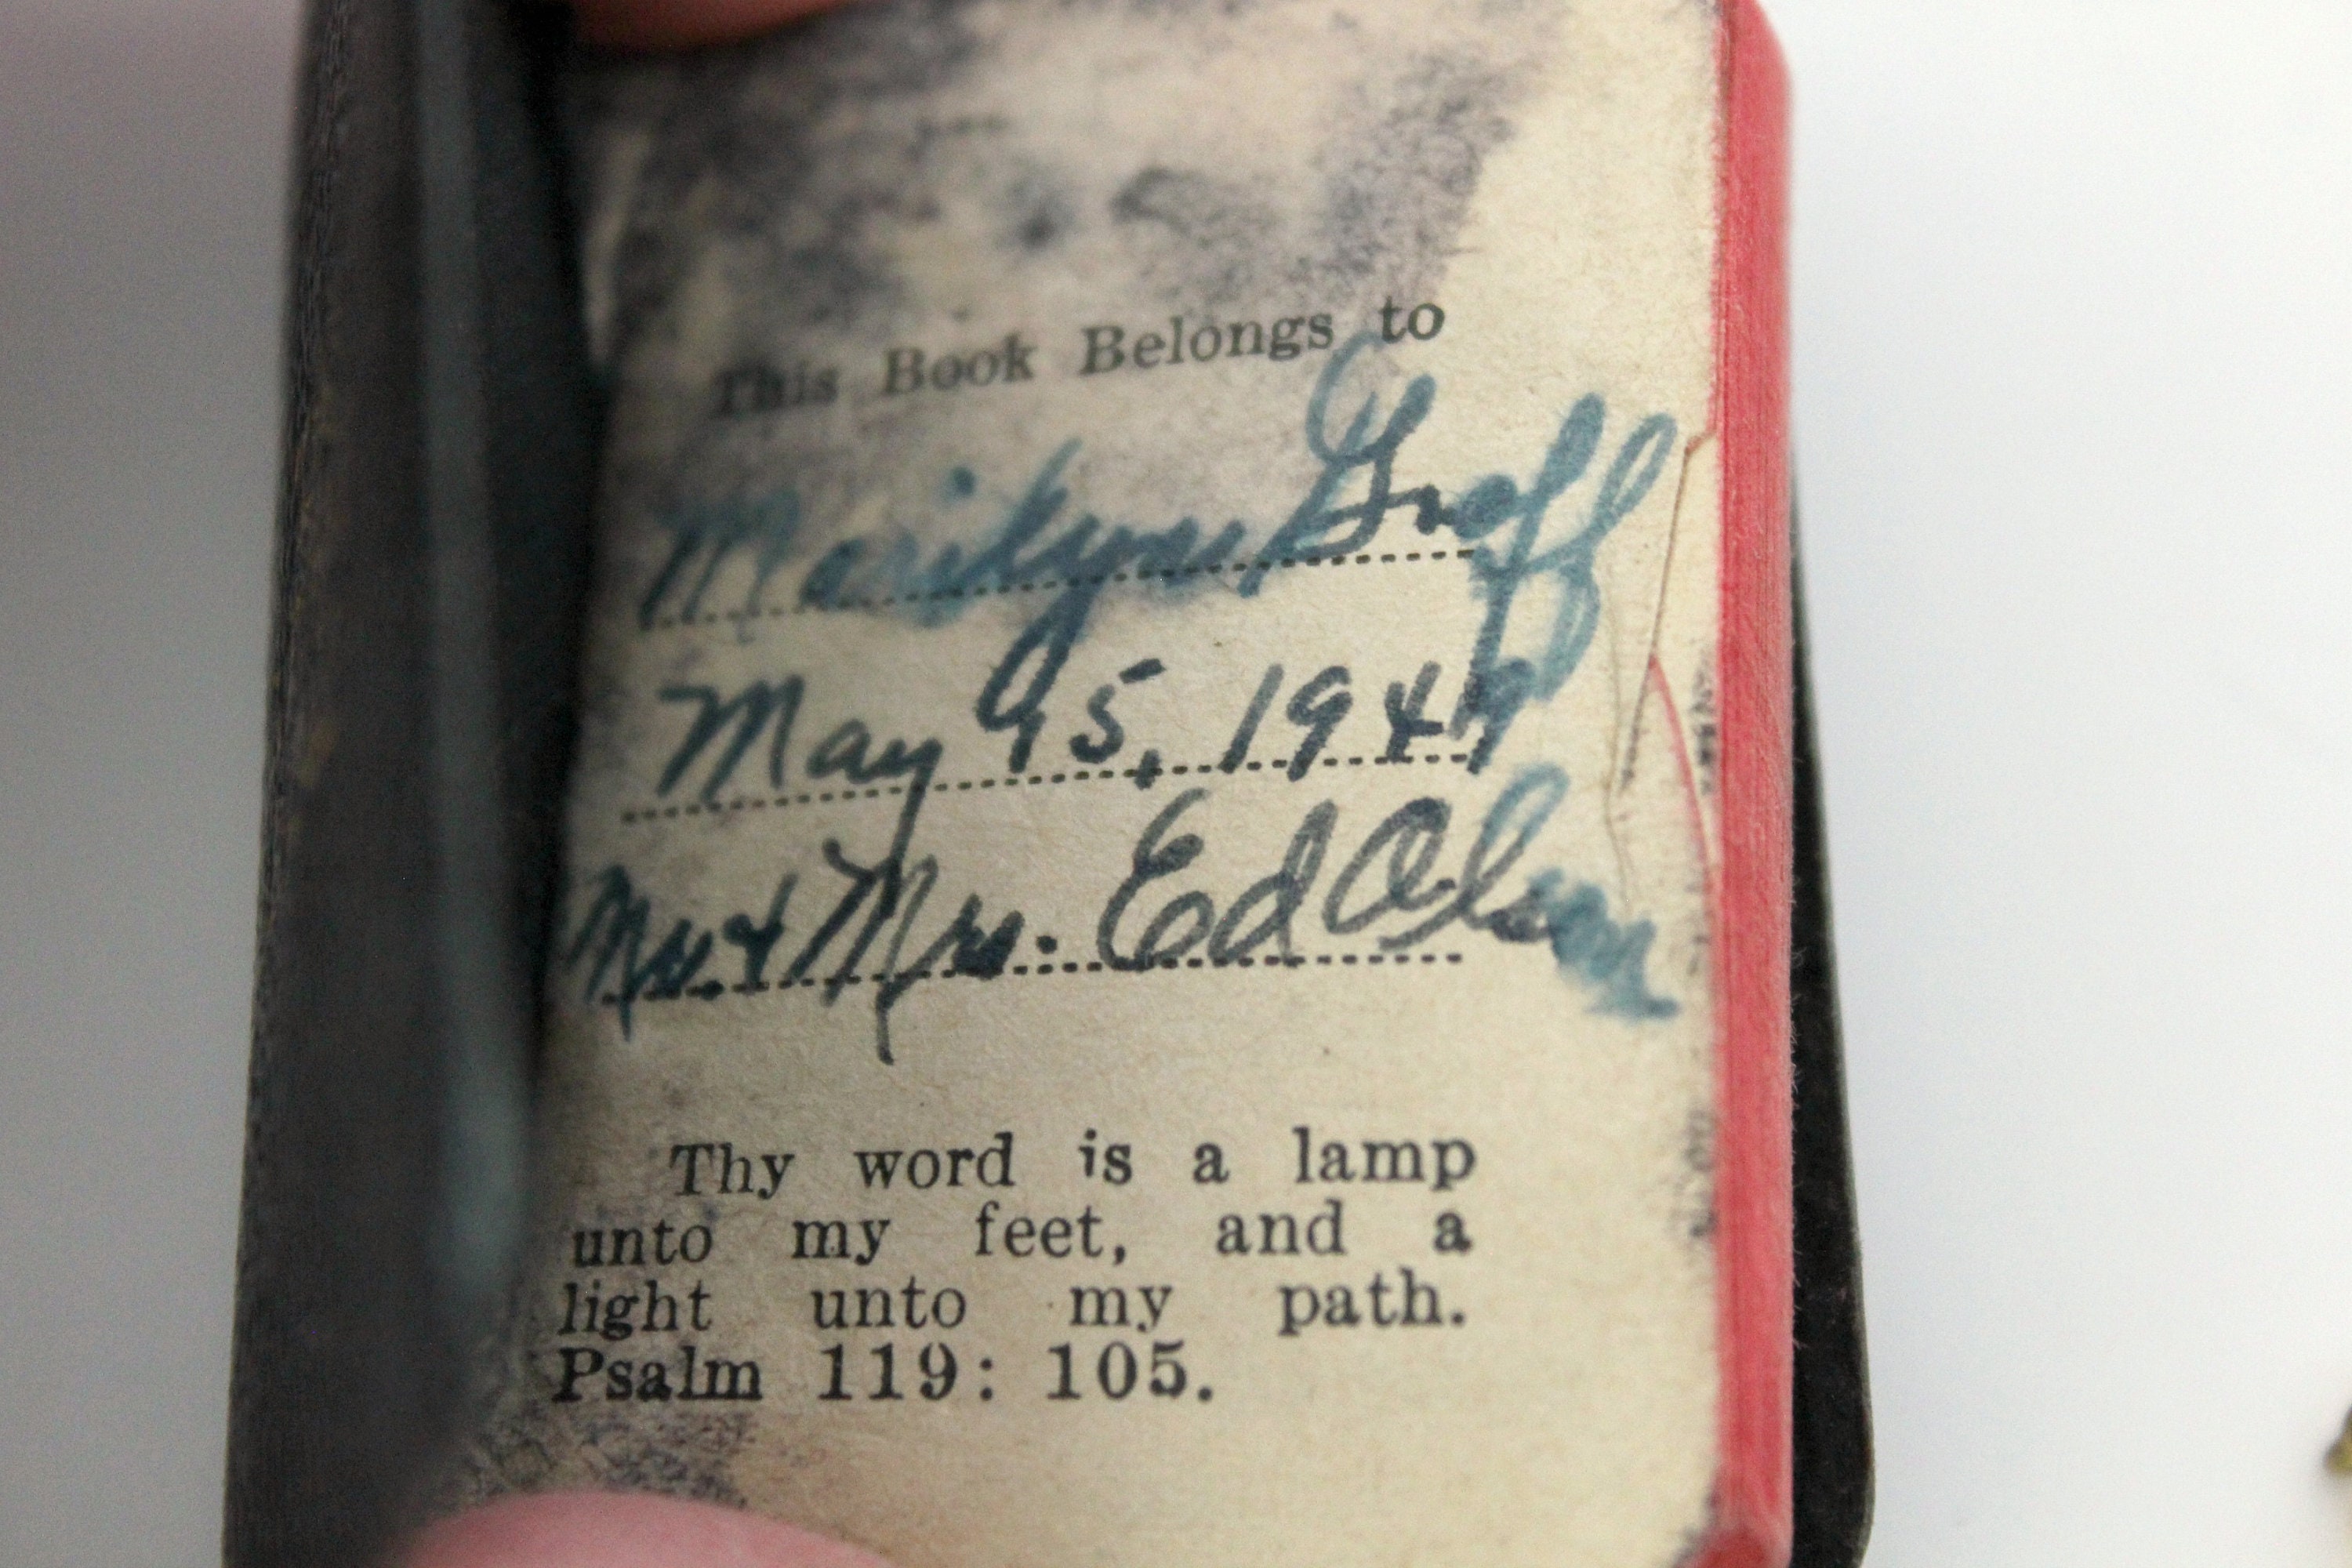 This Book Belongs to
Marilyn Groff
May 15,
Mr. & Mrs. Ed Olson
Thy word is a lamp
unto my feet, and a
light unto my path.
Psalm 119: 105.